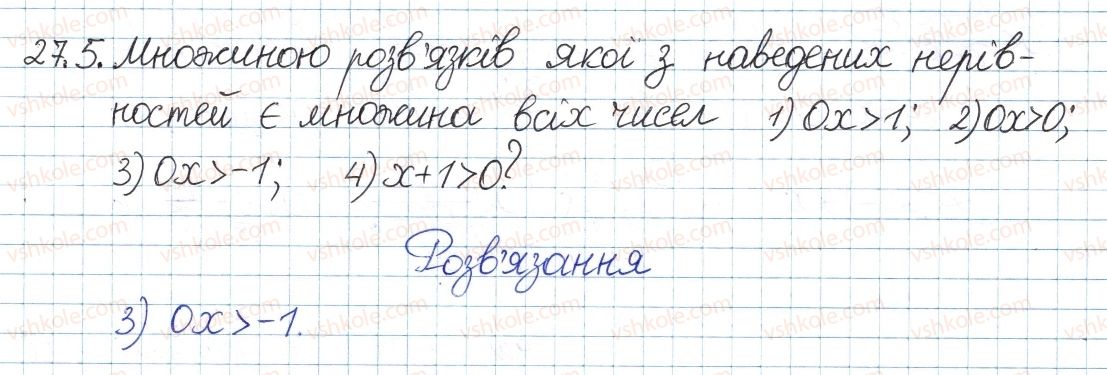 27.5. Множиною розв'язків якої з наведених нерів-
ностей є множина всіх чисел 1) 0x>1; 2) 0x>0;
3) 0x>-1; 4) x+1>0?
Розв'язання
3) 0x>-1.